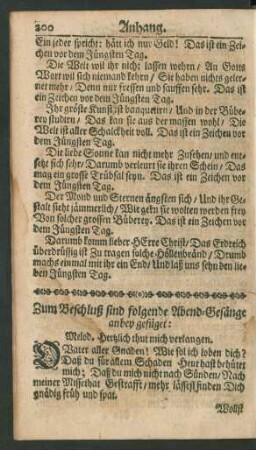 200 Anhang.
Ein jeder spricht: hätt ich nur Geld! Das ist ein Zei-
chen vor dem Jüngsten Tag.
Die Welt wil ihr nicht lassen wehrn / An Gotts
Wort wil sich niemand kehrn / Sie haben nichts geler-
net mehr / Denn nur fressen und sauffen sehr. Das ist
ein Zeichen vor dem Jüngsten Tag.
Ihr gröste Kunst ist banqvetirn / Und in der Bübe-
rey studirn / Das kan sie aus der massen wohl / Die
Welt ist aller Schalckheit voll. Das ist ein Zeichen vor
dem Jüngsten Tag.
Die liebe Sonne kan nicht mehr Zusehen / und ent-
setzt sich sehr / Darumb verleurt sie ihren Schein / Das
mag ein grosse Trübsal seyn. Das ist ein Zeichen vor
dem Jüngsten Tag.
Der Mond und Sternen ängsten sich / Und ihr Ge-
stalt sieht jämmerlich / Wie gern sie wolten werden frey
Von solcher grossen Büberey. Das ist ein Zeichen vor
dem Jüngsten Tag.
Darumb komm lieber HErre Christ / Das Erdreich
überdrüßig ist Zu tragen solche Höllenbränd / Drumb
machs einmal mit ihr ein End / Und laß uns sehn den lie-
ben Jüngsten Tag.
Zum Beschluß sind folgende Abend-Gesänge
anbey gefüget:
Melod. Hertzlich thut mich verlangen.
O Vater aller Gnaden! Wie sol ich loben dich?
Daß du für allem Schaden Heut hast behütet
mich; Daß du mich nicht nach Sünden / Nach
meiner Missethat Gestrafft / mehr lässest finden Dich
gnädig früh und spat.
Wollst